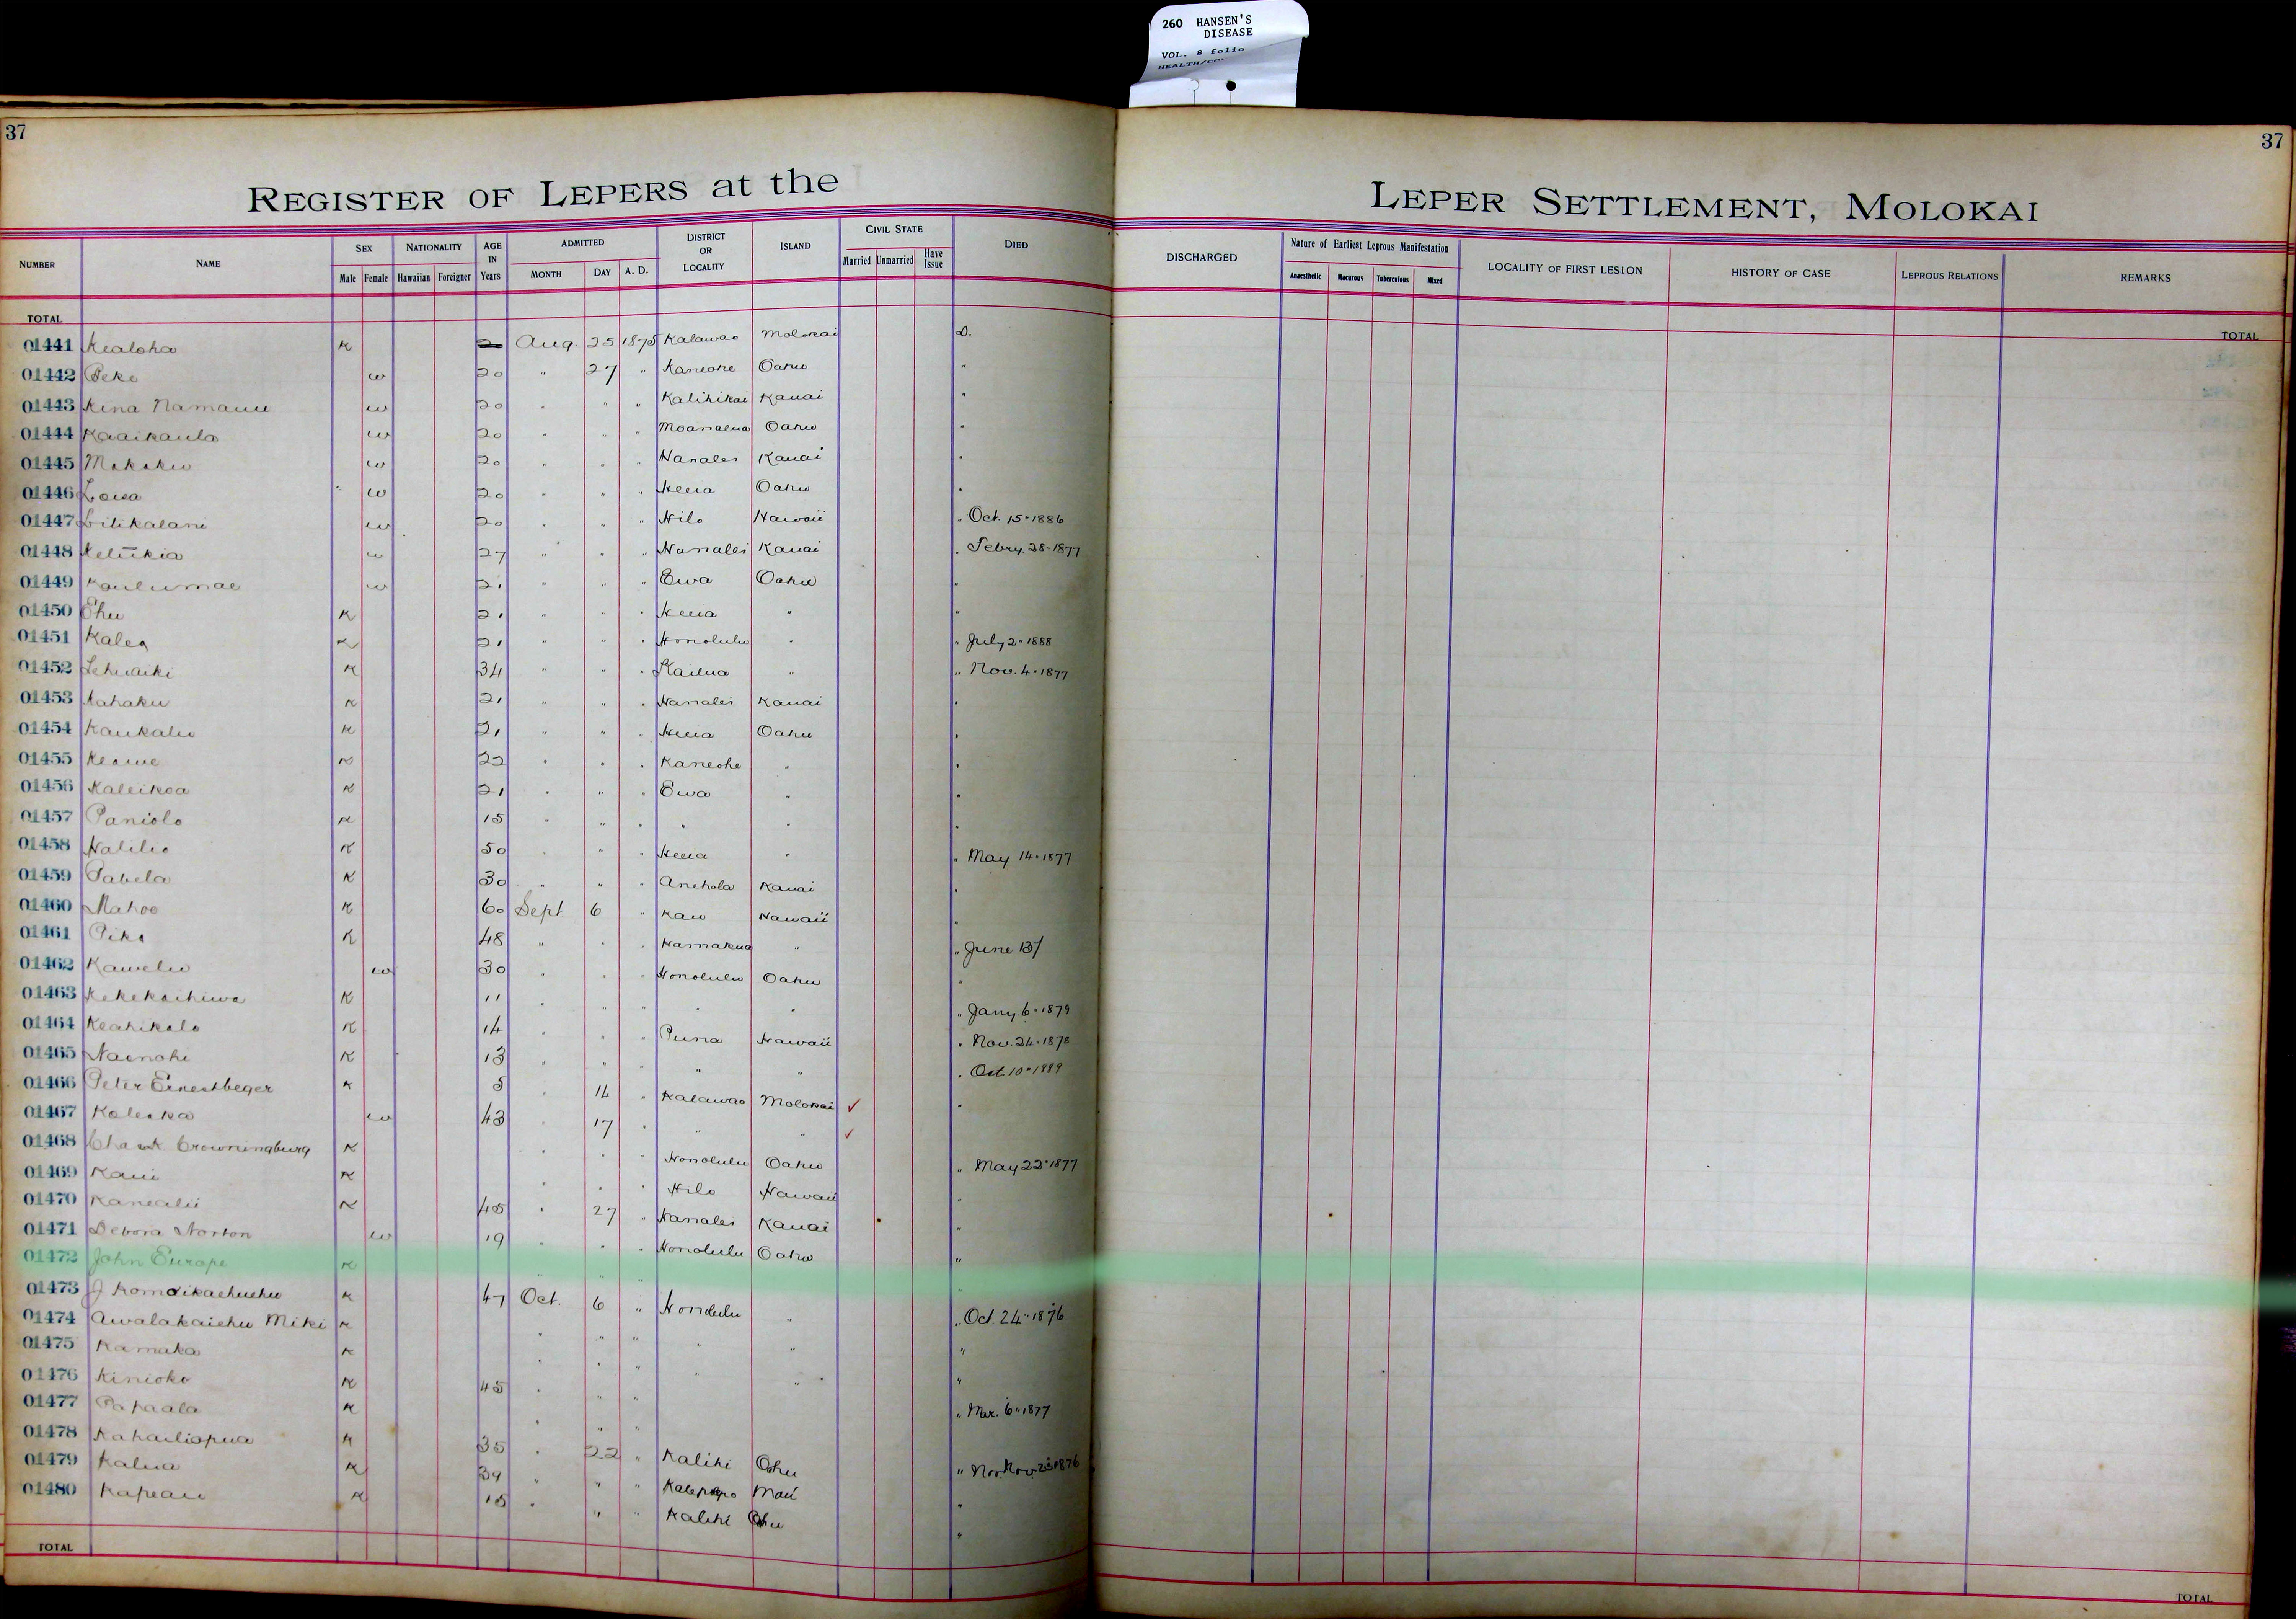 260 HANSEN'S
DISEASE
VOL. 8 folio
37
37
REGISTER OF LEPERS at the
LEPER SETTLEMENT, MOLOKAI
NUMBER NAME SEX Male Female NATIONALITY Hawaiian Foreigner AGE IN Years ADMITTED MONTH DAY A. D. DISTRICT OR LOCALITY ISLAND CIVIL STATE Married Unmarried Have Issue DIED
DISCHARGED Nature of Earliest Leprous Manifestation Anaesthetic Macurous Tuberculous Mixed LOCALITY OF FIRST LESION HISTORY OF CASE LEPROUS RELATIONS REMARKS
TOTAL
TOTAL
01441 Kealoha K 20 Aug. 25 1875 Kalawao Molokai D.
01442 Peke w 20 " 27 " Kaneohe Oahu "
01443 Kina Namauu w 20 " " " Kalihikai Kauai "
01444 Kaaikaula w 20 " " " Moanalua Oahu "
01445 Mokoku w 20 " " " Hanalei Kauai "
01446 Loisa w 20 " " " Heeia Oahu "
01447 Lilikalani w 20 " " " Hilo Hawaii " Oct. 15-1886
01448 Keliikia w 27 " " " Hanalei Kauai " Febry. 28-1877
01449 Kaulumae w 21 " " " Ewa Oahu "
01450 Ehu K 21 " " " Heeia " "
01451 Kalea K 21 " " " Honolulu " " July 2-1888
01452 Lehuaiki K 34 " " " Kailua " " Nov. 4-1877
01453 Kahaku K 21 " " " Hanalei Kauai "
01454 Kaukaliu K 21 " " " Heeia Oahu "
01455 Keawe K 22 " " " Kaneohe " "
01456 Kaleikoa K 21 " " " Ewa " "
01457 Paniolo K 15 " " " " " "
01458 Halilio K 50 " " " Heeia " " May 14-1877
01459 Pabela K 30 " " " Anehola Kauai "
01460 Mahoe K 60 Sept 6 " Kau Hawaii "
01461 Piko K 48 " " " Hamakua " " June 137
01462 Kawelu w 30 " " " Honolulu Oahu "
01463 Kekekoihiwa K 11 " " " " " " Jany. 6-1879
01464 Keahikolo K 14 " " " Puna Hawaii " Nov. 24-1878
01465 Nainohi K 13 " " " " " " Oct 10-1889
01466 Peter Ernestbeger K 5 " 14 " Kalawao Molokai ✓ "
01467 Kaleika w 43 " 17 " " " ✓
01468 Crowningburg K " " " Honolulu Oahu " May 22-1877
01469 Kaui K " " " Hilo Hawaii "
01470 Kanealii K 45 " 27 " Hanalei Kauai "
01471 Debora Norton w 19 " " " Honolulu Oahu "
01472 John Europe K " "
01473 J Komoikaehuehu K 47 Oct. 6 " Honolulu " " Oct. 24-1876
01474 Awalakaiehu Miki K " " " " " "
01475 Kamaka K " " " " " "
01476 Kinioko K 45 " " " " Mar. 6-1877
01477 Papaala K " " "
01478 Kahailiopua K 35 " 22 " Kalihi Oahu " Nov. 23-1876
01479 Kalua K 39 " " " Kalepopo Maui "
01480 Kapeau K 15 " " " Kalihi Oahu "
TOTAL
TOTAL